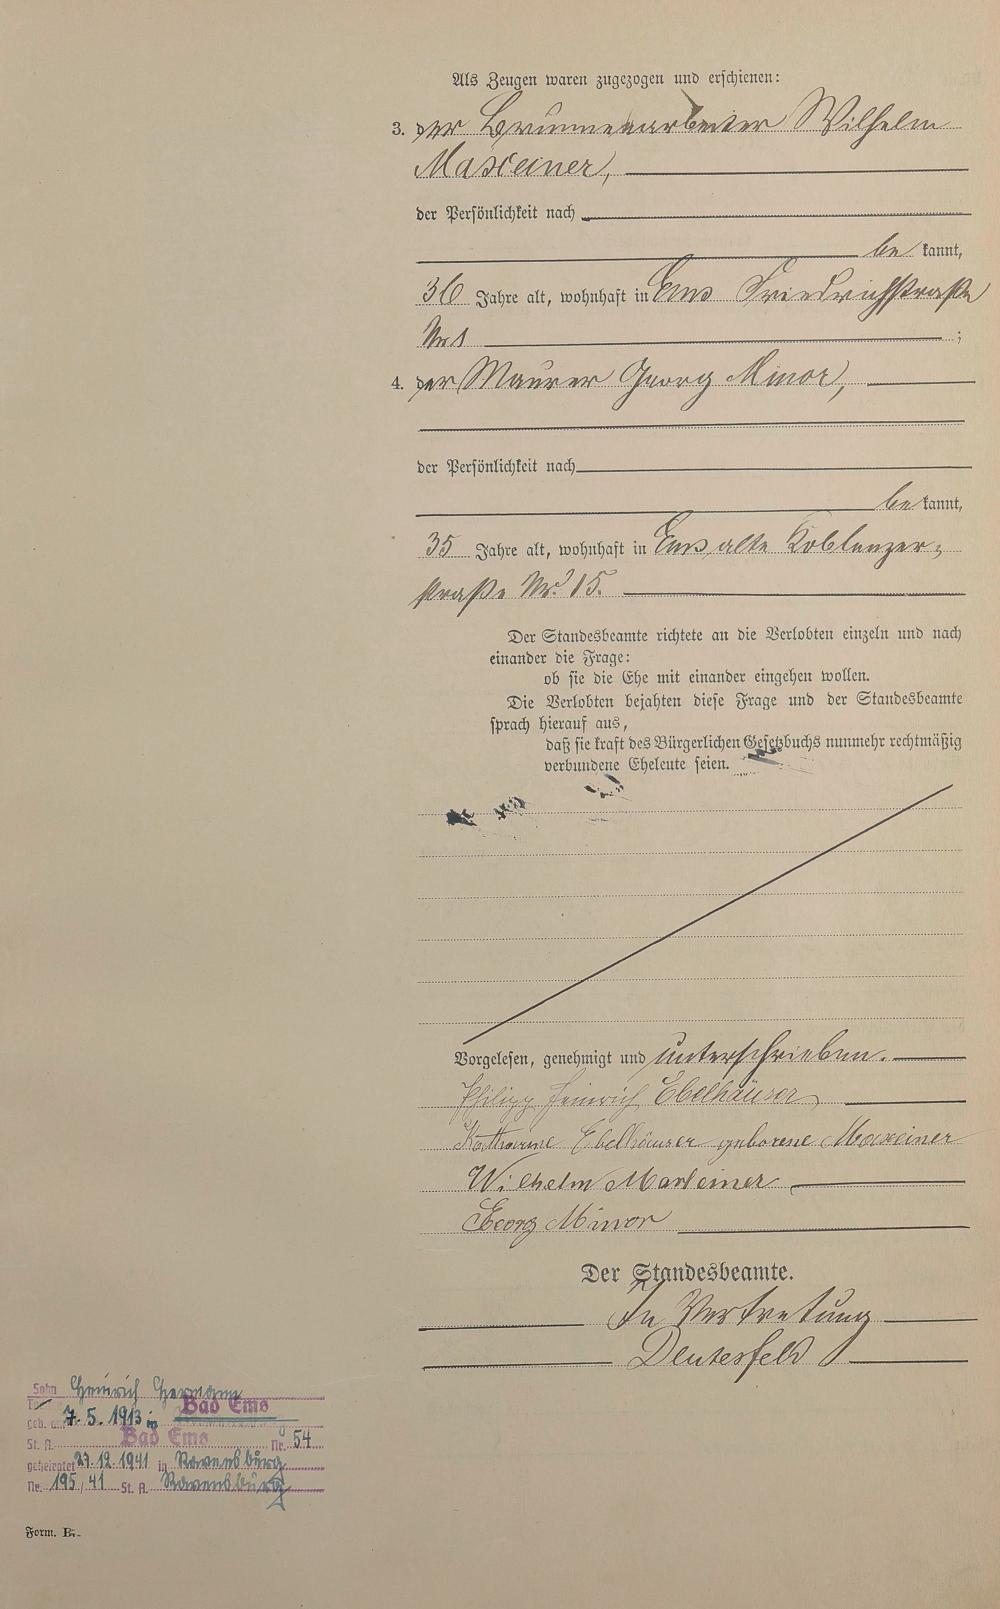 Als Zeugen waren zugezogen und erschienen:
3. der Brunnenarbeiter Wilhelm
Maxeiner,
der Persönlichkeit nach
be kannt,
36 Jahre alt, wohnhaft in Ems Friedrichstraße
Nr 1 ;
4. der Maurer Georg Minor,
der Persönlichkeit nach
be kannt,
35 Jahre alt, wohnhaft in Ems alte Koblenzer-
straße Nr. 15.
Der Standesbeamte richtete an die Verlobten einzeln und nach
einander die Frage:
ob sie die Ehe mit einander eingehen wollen.
Die Verlobten bejahten diese Frage und der Standesbeamte
sprach hierauf aus,
daß sie kraft des Bürgerlichen Gesetzbuchs nunmehr rechtmäßig
verbundene Eheleute seien.
Vorgelesen, genehmigt und unterschrieben.
Philipp Heinrich Ebelhäuser
Katharine Ebelhäuser geborene Maxeiner
Wilhelm Maxleiner
Georg Minor
Der Standesbeamte.
In Vertretung
Sohn Heinrich Hermann
geb. am 7. 5. 1913 in Bad Ems
St. A. Bad Ems Nr. 54
geheiratet 27.12.1941 in Ravensburg
Nr. 195/41 St. A. Ravensburg
Form. B.